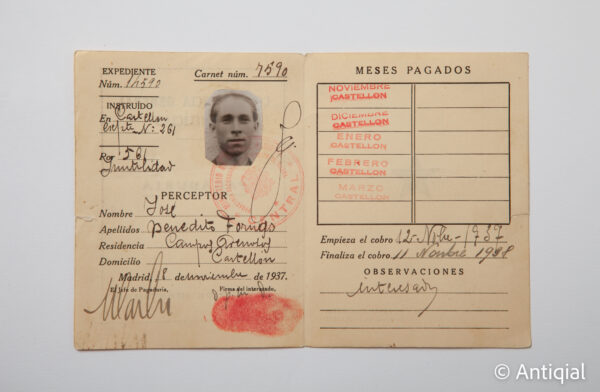 EXPEDIENTE
Núm. 14590
Carnet núm. 7590
INSTRUÍDO
En Castellon
Nº 261
Por 561
Inutilidad
PERCEPTOR
Nombre José
Apellidos Benedito
Residencia Campos
Domicilio Castellon
Madrid, 8 de noviembre de 1937.
El Jefe de Pagaduría,
Firma del interesado,
CENTRAL
MESES PAGADOS
NOVIEMBRE
CASTELLON
DICIEMBRE
CASTELLON
ENERO
CASTELLON
FEBRERO
CASTELLON
MARZO
CASTELLON
Empieza el cobro 12-Nbre-1937
Finaliza el cobro 11 Novbre 1938
OBSERVACIONES
Interesado
© Antiqial